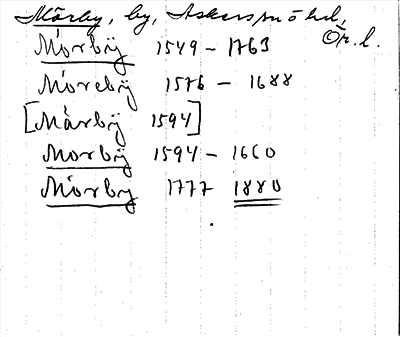 Mörby, by, Askersunds hd,
Ör. l.
Mörbÿ 1549 - 1763
Mörebÿ 1576 - 1688
[Mårbÿ 1594]
Morbÿ 1594 - 1660
Mörby 1777 1880